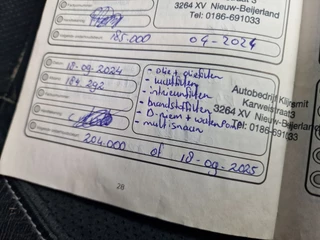 3264 XV Nieuw-Beijerland
Tel: 0186-691033
185.000 04-2024
18-09-2024
184.292
- olie + oliefilter
- luchtfilter
- interieurfilter
- brandstoffilter
- D-riem + waterpomp
- multisnaar
Autobedrijf Kljsmit
Karweistraat3
3264 XV Nieuw-Beijerland
Tel: 0186-691033
204.000 of 18-09-2025
28